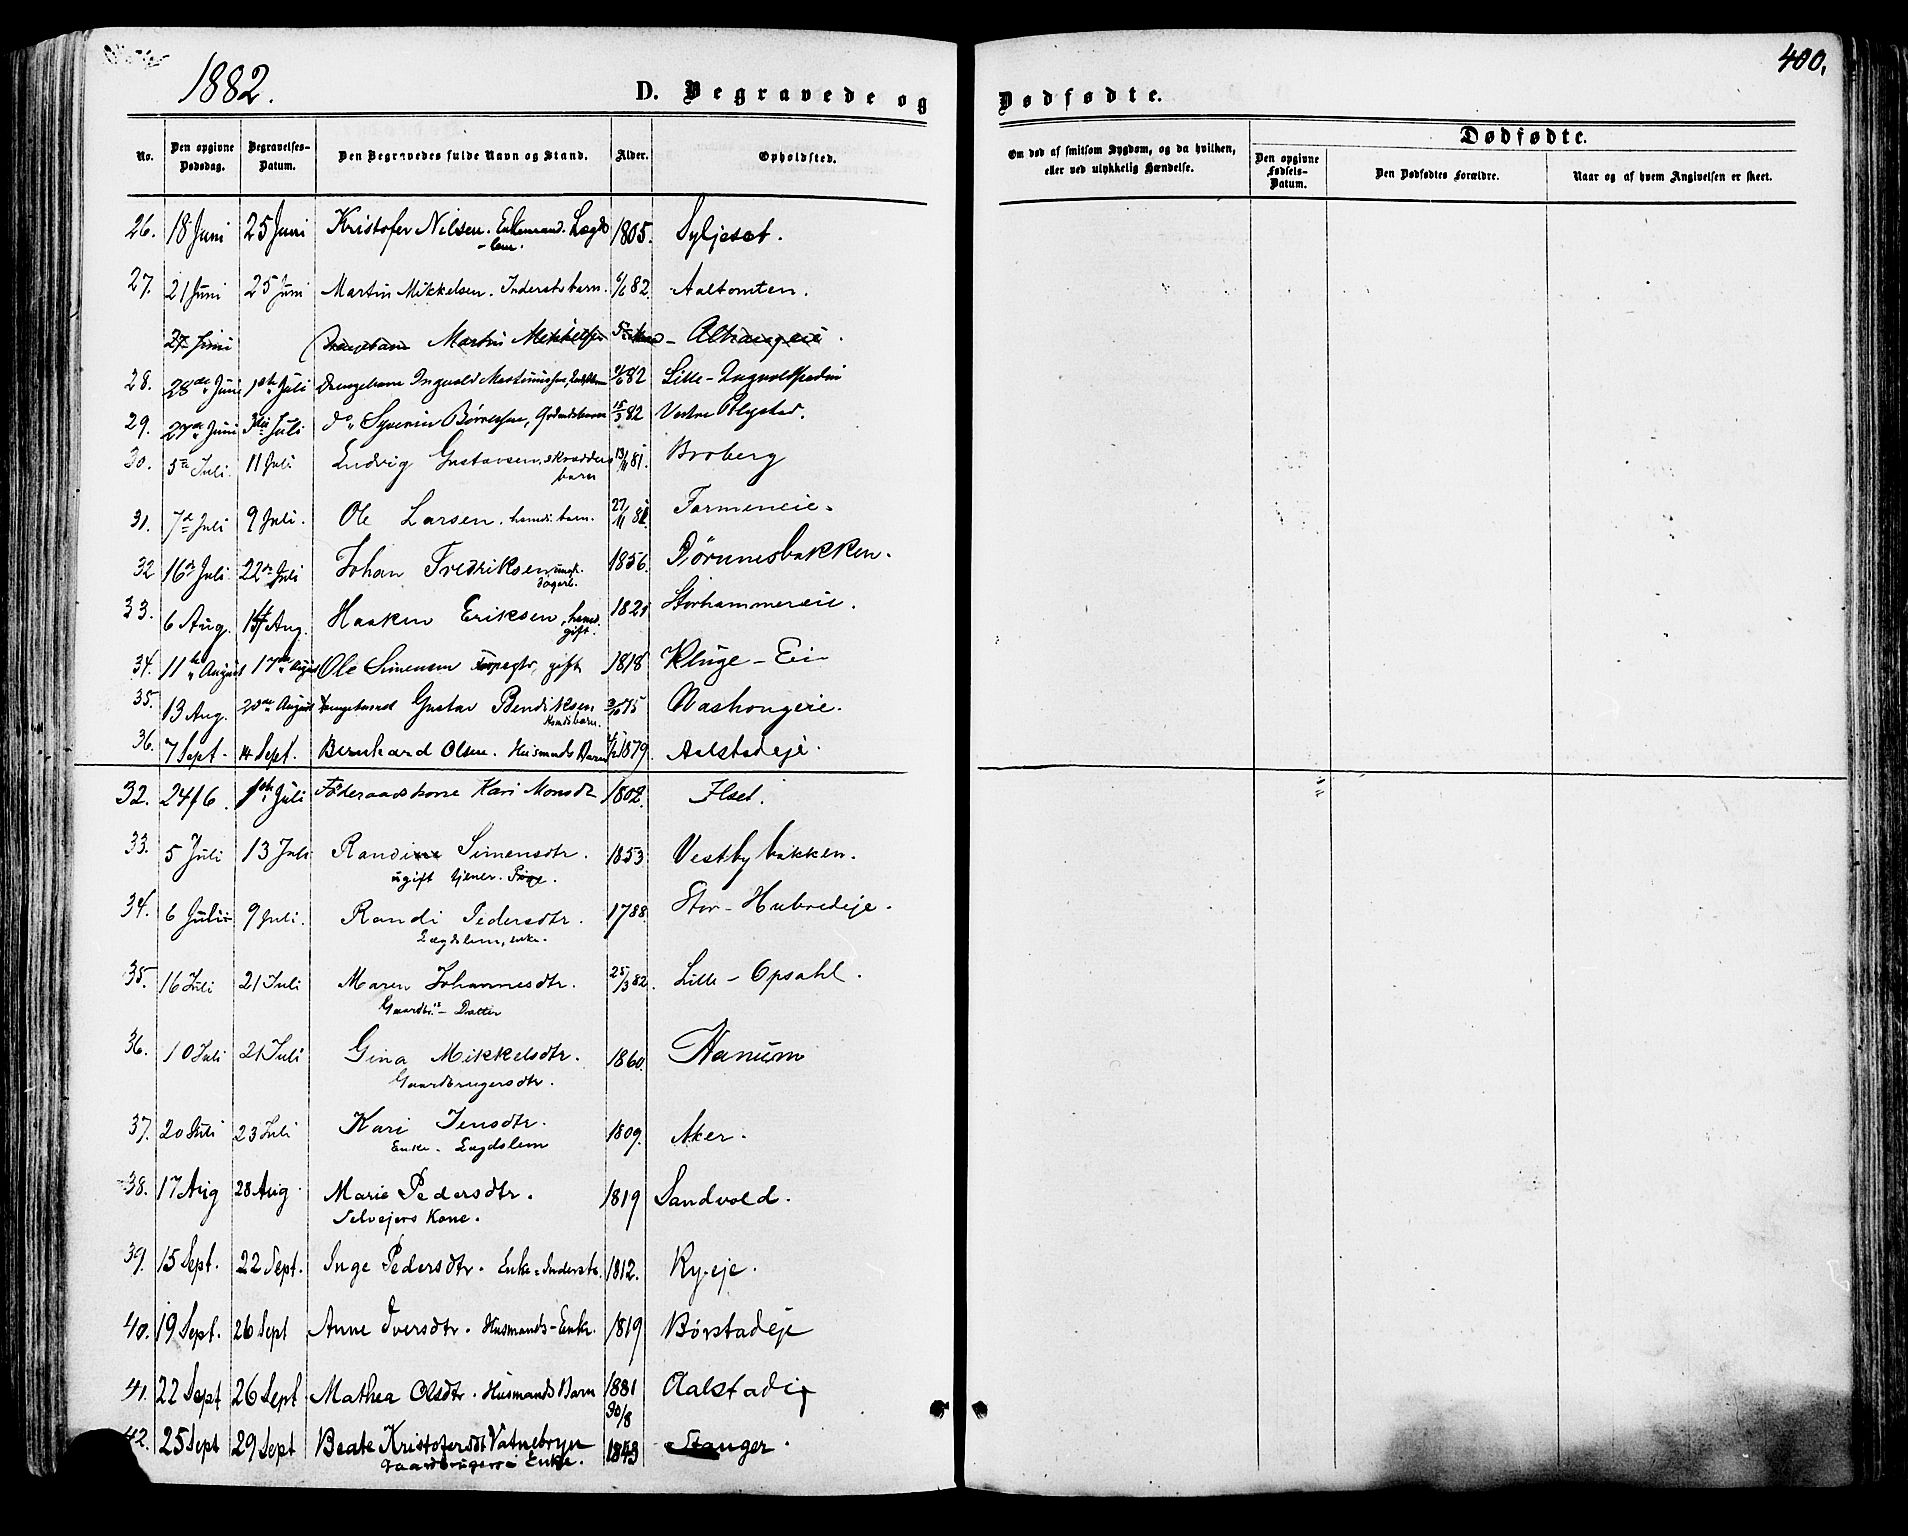 1882.
400.
D. Begravede og Dødfødte.
No.
Den opgivne Dødsdag.
Begravelses-Datum.
Den Begravedes fulde Navn og Stand.
Alder.
Opholdsted.
Om død af smitsom Sygdom, og da hvilken, eller ved ulykkelig Hændelse.
Dødfødte.
Den opgivne Fødsels-Datum.
Den Dødfødtes Forældre.
Naar og af hvem Angivelsen er skeet.
26. 18 Juni 25 Juni Kristofer Nilsen. Enkemand. Lægds
-lem. 1805. Syljeset.
27. 21 Juni 25 Juni Martin Mikkelsen. Inderstbarn. 6/6 82. Aaltomten.
27 Juni Drengebarn Martin Mikkelsen
28. 28de Juni 1ste Juli Drengebarn Ingvald Martinusen, 82 Lille-
29. 27de Juni 3die Juli do Syverin 15/3 82 Vestre
30. 5te Juli. 11 Juli Ludvig Gustavsen, skrædders
barn 13/11 81. Broberg
31. 7de Juli 9 Juli. Ole Larsen. hmds. barn. 27/11 81. Farmeneie.
32 16de Juli 22de Juli Johan Fredriksen ungk.
dagarb. 1856. Dørumsbakken.
33. 6 Aug. 14 Aug. Haaken Eriksen, hmd.
gift. 1821 Storhammereie.
34. 11te August 17de August Ole Simensen gift 1818 Kluge-Eie
35. 13 Aug. 20de August Drengebarnet Gustav Bendiksen
Hmdsbarn. 75 Aashougeie.
36. 7 Sept. 14 Sept. Bernhard Olsen. Husmands Barn 1879. Aalstadeje.
32. 24/6. 1ste Juli Føderaadskone Kari Monsdtr 1802. Ilset.
33. 5 Juli 13 Juli Randine Simensdtr.
ugift tjener. Pige. 1853 Vestbybakken.
34. 6 Juli 9 Juli. Randi Pedersdtr.
Lægdslem, enke. 1788. Stor-Hubredeje.
35. 16 Juli 21 Juli Maren Johannesdtr.
Gaardbr.s - Datter 25/3 82. Lille-Opsahl.
36. 10 Juli 21 Juli Gina Mikkelsdtr.
Gaardbrugersdtr. 1860. Hanum
37. 20 Juli 23 Juli Kari Jensdtr.
Enke. Lægdslem 1809. Aker.
38. 17 Aug 28 Aug Marie Pedersdtr.
Selvejers Kone. 1819 Sandvold.
39. 15 Sept. 22 Sept. Inge Pedersdtr. Enke-Inderste. 1812. Ry-eje.
40. 19 Sept. 26 Sept Anne Iversdtr. Husmands-Enke. 1819 Børstadeje
41. 22 Sept 26 Sept Mathea Olsdtr. Husmands Barn 1881
30/8 Aalstadeje
42. 25 Sept 29 Sept Beate Kristofersdt Vatnebryn
Gaardbrugers Enke. 1843 Stanger.